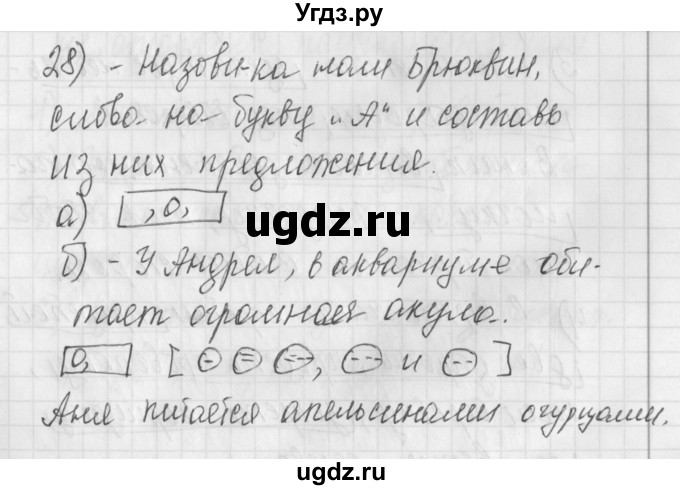 Угдз.ру
28) - Назови-ка толи Брюквин,
слова на букву „А" и составь
из них предложения.
а) [ , о, ]
ugdz.ru
б) - У Андрея, в аквариуме оби-
тает огромная акула.
о,
и
Аня питается апельсинами огурцами.
ugdz.ru